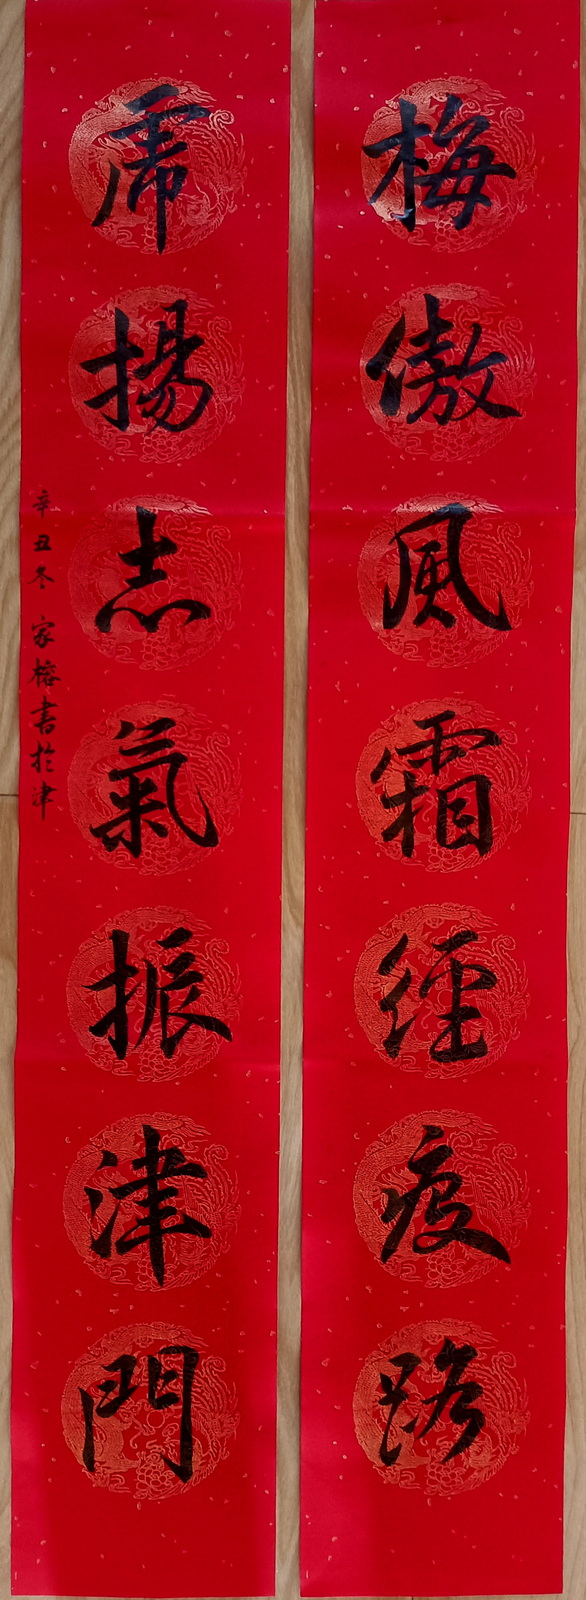 梅傲風霜經疫路
虎揚志氣振津門
辛丑冬 家榕書於津